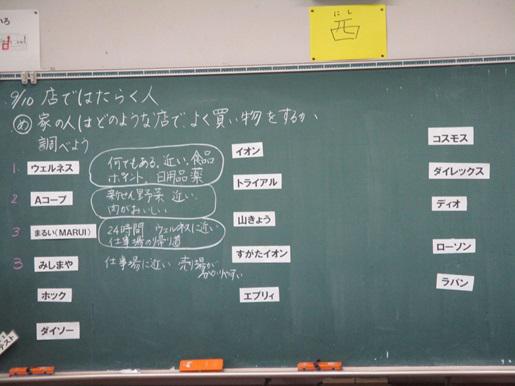 にし
西
9/10 店ではたらく人
め 家の人はどのような店で、よく買い物をするか、
調べよう
1 ウェルネス
何でもある。近い。食品
ポイント、日用品 薬
2 Aコープ
新せん野菜 近い
肉がおいしい
3 まるい(MARUI)
24時間 ウェルネスに近い
仕事場の帰り道
3 みしまや
仕事場に近い 売場が
わかりやすい
ホック
ダイソー
イオン
トライアル
山きょう
すがたイオン
エブリィ
コスモス
ダイレックス
ディオ
ローソン
ラパン